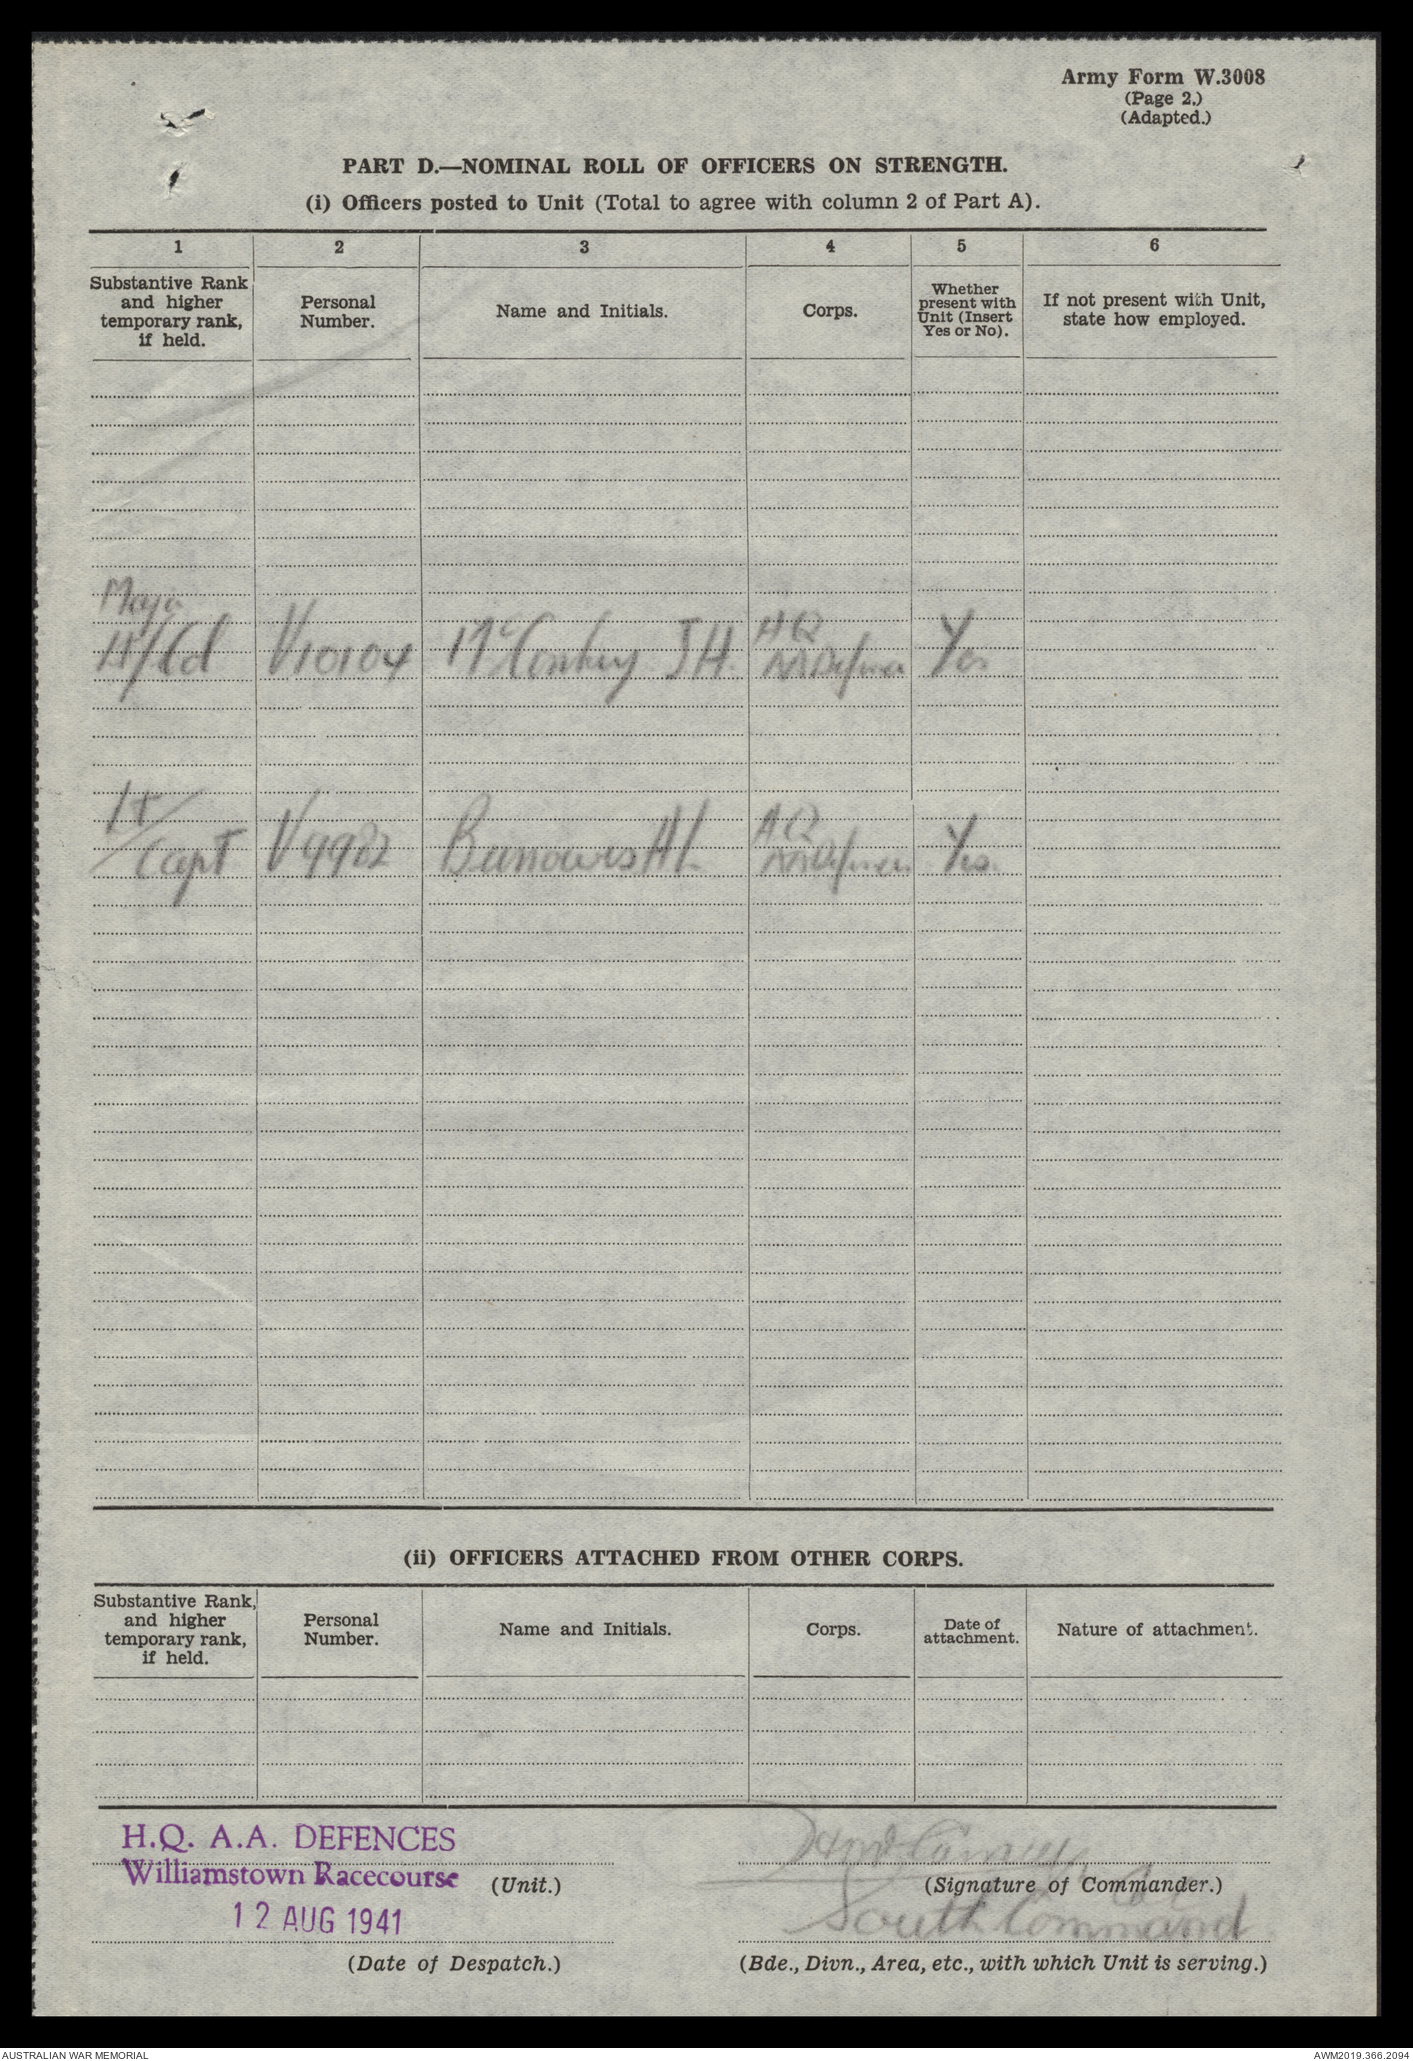 Army Form W.3008
(Page 2.)
(Adapted.)
PART D.—NOMINAL ROLL OF OFFICERS ON STRENGTH.
(i) Officers posted to Unit (Total to agree with column 2 of Part A).
1 2 3 4 5 6
Substantive Rank and higher temporary rank, if held.
Personal Number.
Name and Initials.
Corps.
Whether present with Unit (Insert Yes or No).
If not present with Unit, state how employed.
Major
Lt/Col V10104 McConkey J H. HQ AA Defences Yes
Lt/Capt V9982 Burrows H L HQ AA Defences Yes.
(ii) OFFICERS ATTACHED FROM OTHER CORPS.
Substantive Rank, and higher temporary rank, if held.
Personal Number.
Name and Initials.
Corps.
Date of attachment.
Nature of attachment.
H.Q. A.A. DEFENCES
Williamstown Racecourse (Unit.)
(Signature of Commander.)
12 AUG 1941
South Command
(Date of Despatch.)
(Bde., Divn., Area, etc., with which Unit is serving.)
AUSTRALIAN WAR MEMORIAL
AWM2019.366.2094